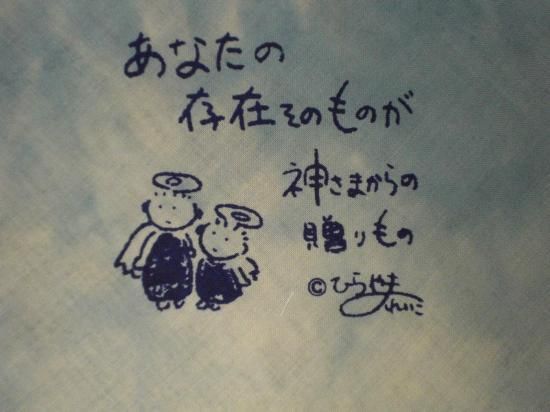 あなたの
存在そのものが
神さまからの
贈りもの
©ひらやま
れいこ